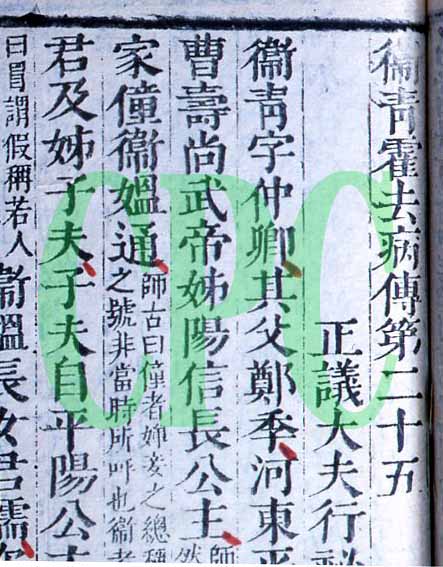 衞青霍去病傳第二十五
正議大夫行
衞青字仲卿其父鄭季河東平
曹壽尚武帝姊陽信長公主師
然
家僮衞媼通師古曰僮者婢妾之總稱
之號非當時所呼也衞者
君及姊子夫子夫自平陽公
曰冒謂假稱若人衞媼長女君孺
CPC